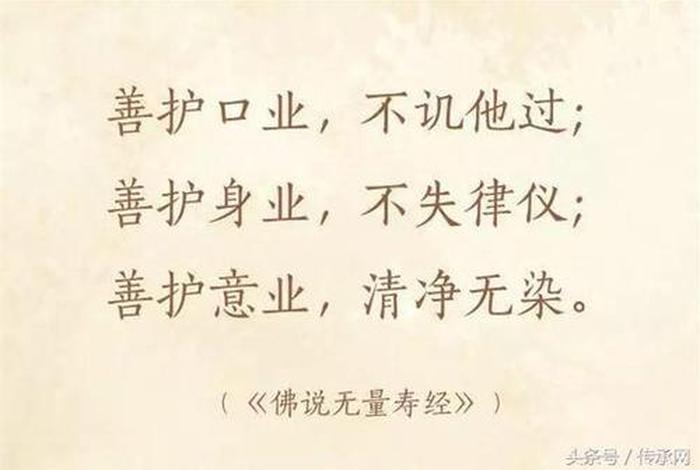 善护口业，不讥他过；
善护身业，不失律仪；
善护意业，清净无染。
（《佛说无量寿经》）
头条号／传承网